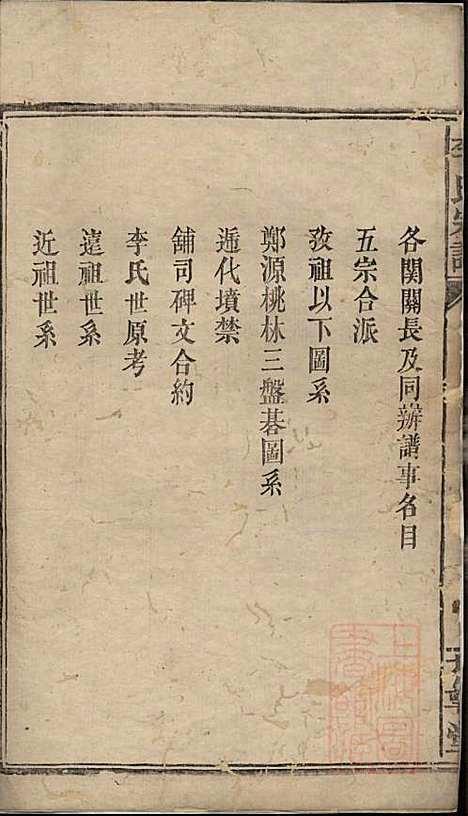 各関關長及同辦譜事名目
五宗合派
敎祖以下圖系
鄭源桃林三盤碁圖系
遞代墳禁
鋪司碑文合約
李氏世原考
遠祖世系
近祖世系
李氏宗譜